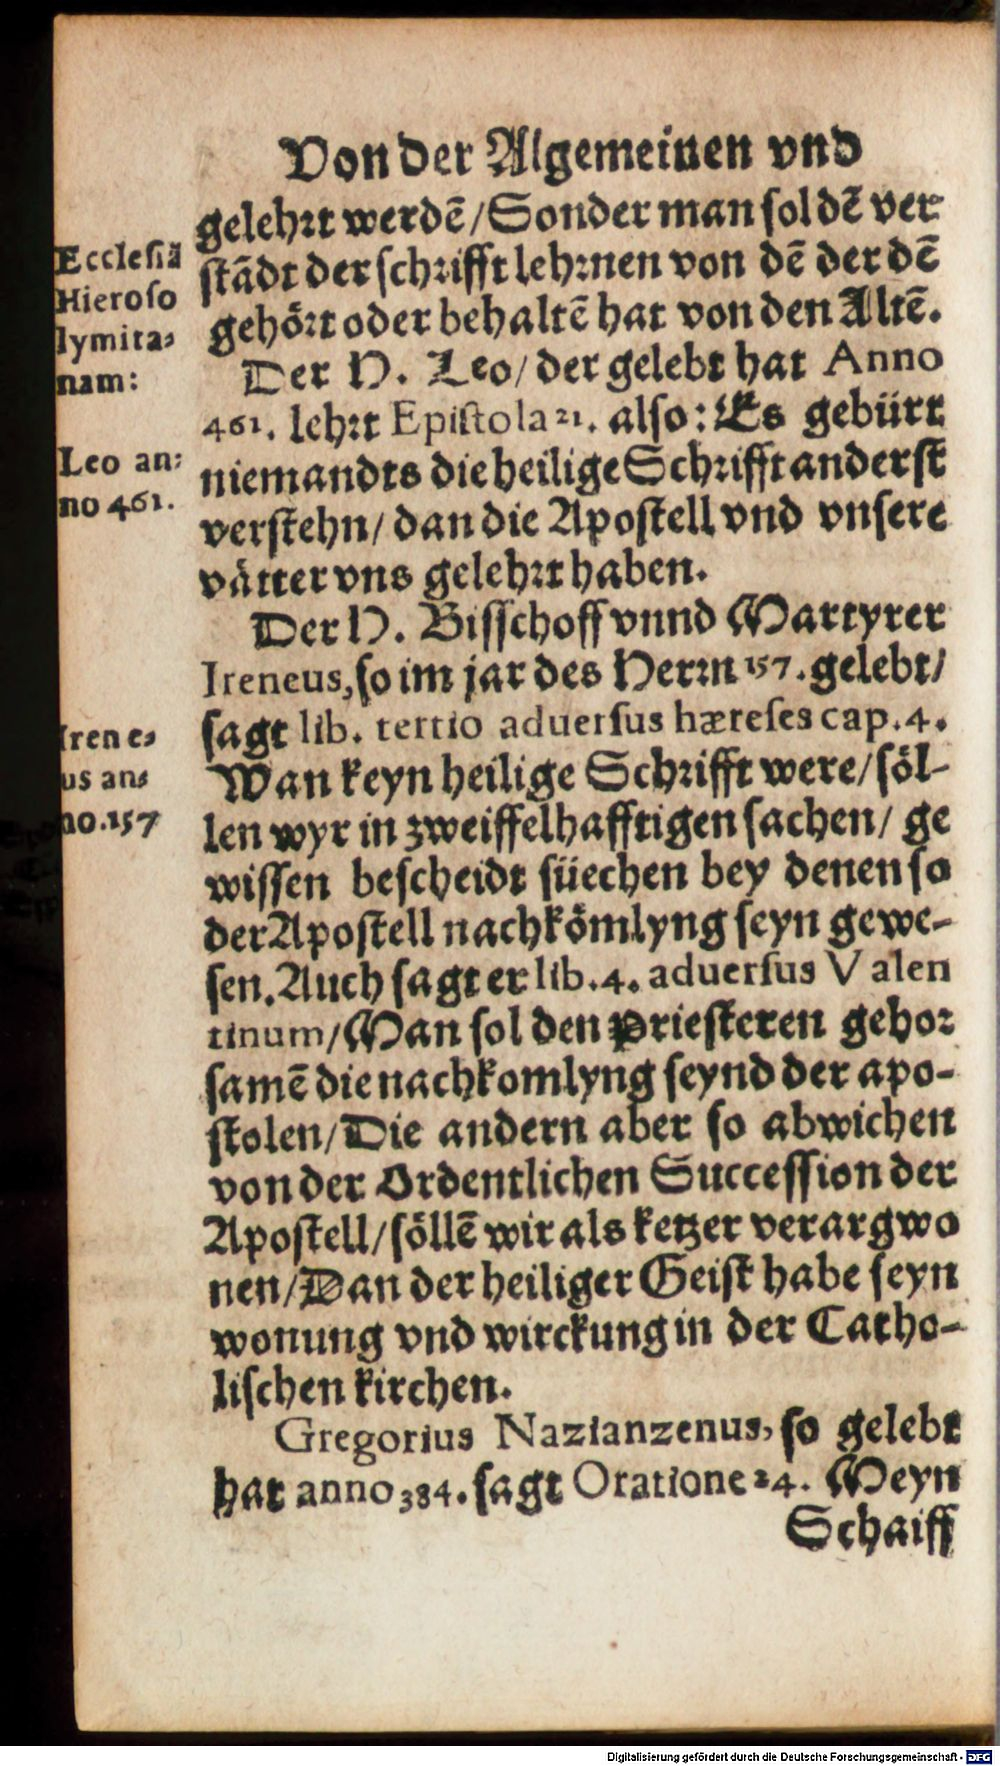 Von der Algemeinen vnd
gelehrt werdē/Sonder man sol dē ver
stādt der schrifft lehrnen von dē der dē
gehört oder behaltē hat von den Altē.
Ecclesiā
Hieroso
lymita-
nam:
Der H. Leo/der gelebt hat Anno
461. lehrt Epistola 21. also: Es gebürt
niemandts die heilige Schrifft anderst
verstehn/ dan die Apostell vnd vnsere
vätter vns gelehrt haben.
Leo an-
no 461.
Der H. Bisschoff vnnd Martyrer
Ireneus, so im jar des Herrn 157. gelebt/
sagt lib. tertio aduersus hæreses cap. 4.
Wan keyn heilige Schrifft were/söl-
len wyr in zweiffelhafftigen sachen/ ge
wissen bescheidt süechen bey denen so
der Apostell nachkömlyng seyn gewe-
sen. Auch sagt er lib. 4. aduersus Valen
tinum/Man sol den Priesteren gehor
samē die nachkomlyng seynd der apo-
stolen/Die andern aber so abwichen
von der Ordentlichen Succession der
Apostell/söllē wir als ketzer verargwo
nen/Dan der heiliger Geist habe seyn
wonung vnd wirckung in der Catho-
lischen kirchen.
Irene-
us an-
no.157
Gregorius Nazianzenus, so gelebt
hat anno 384. sagt Oratione 24. Meyn
Schaiff
Digitalisierung gefördert durch die Deutsche Forschungsgemeinschaft - DFG